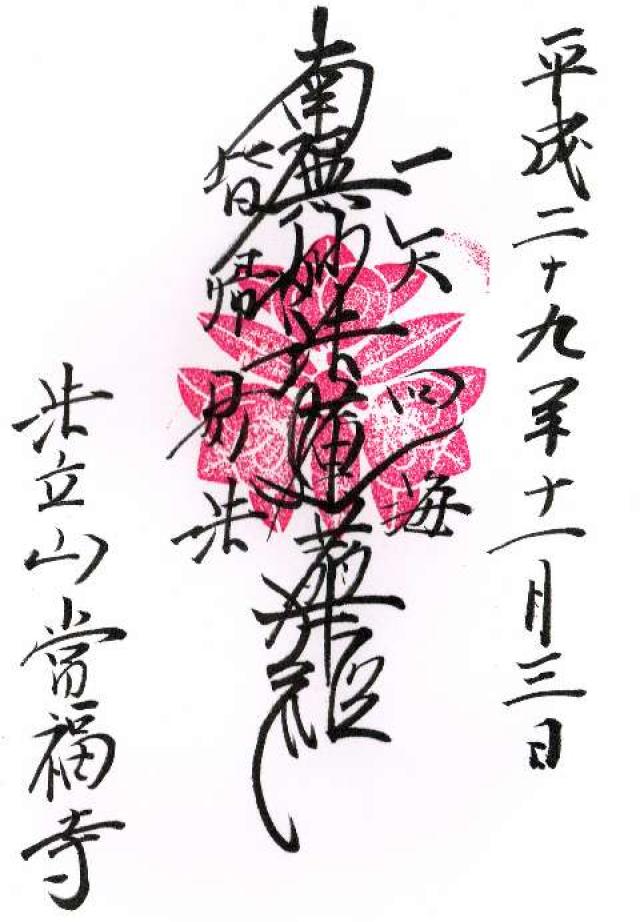 平成二十九年十一月三日
一天四海
南無妙法蓮華経
皆帰妙法
法立山常福寺